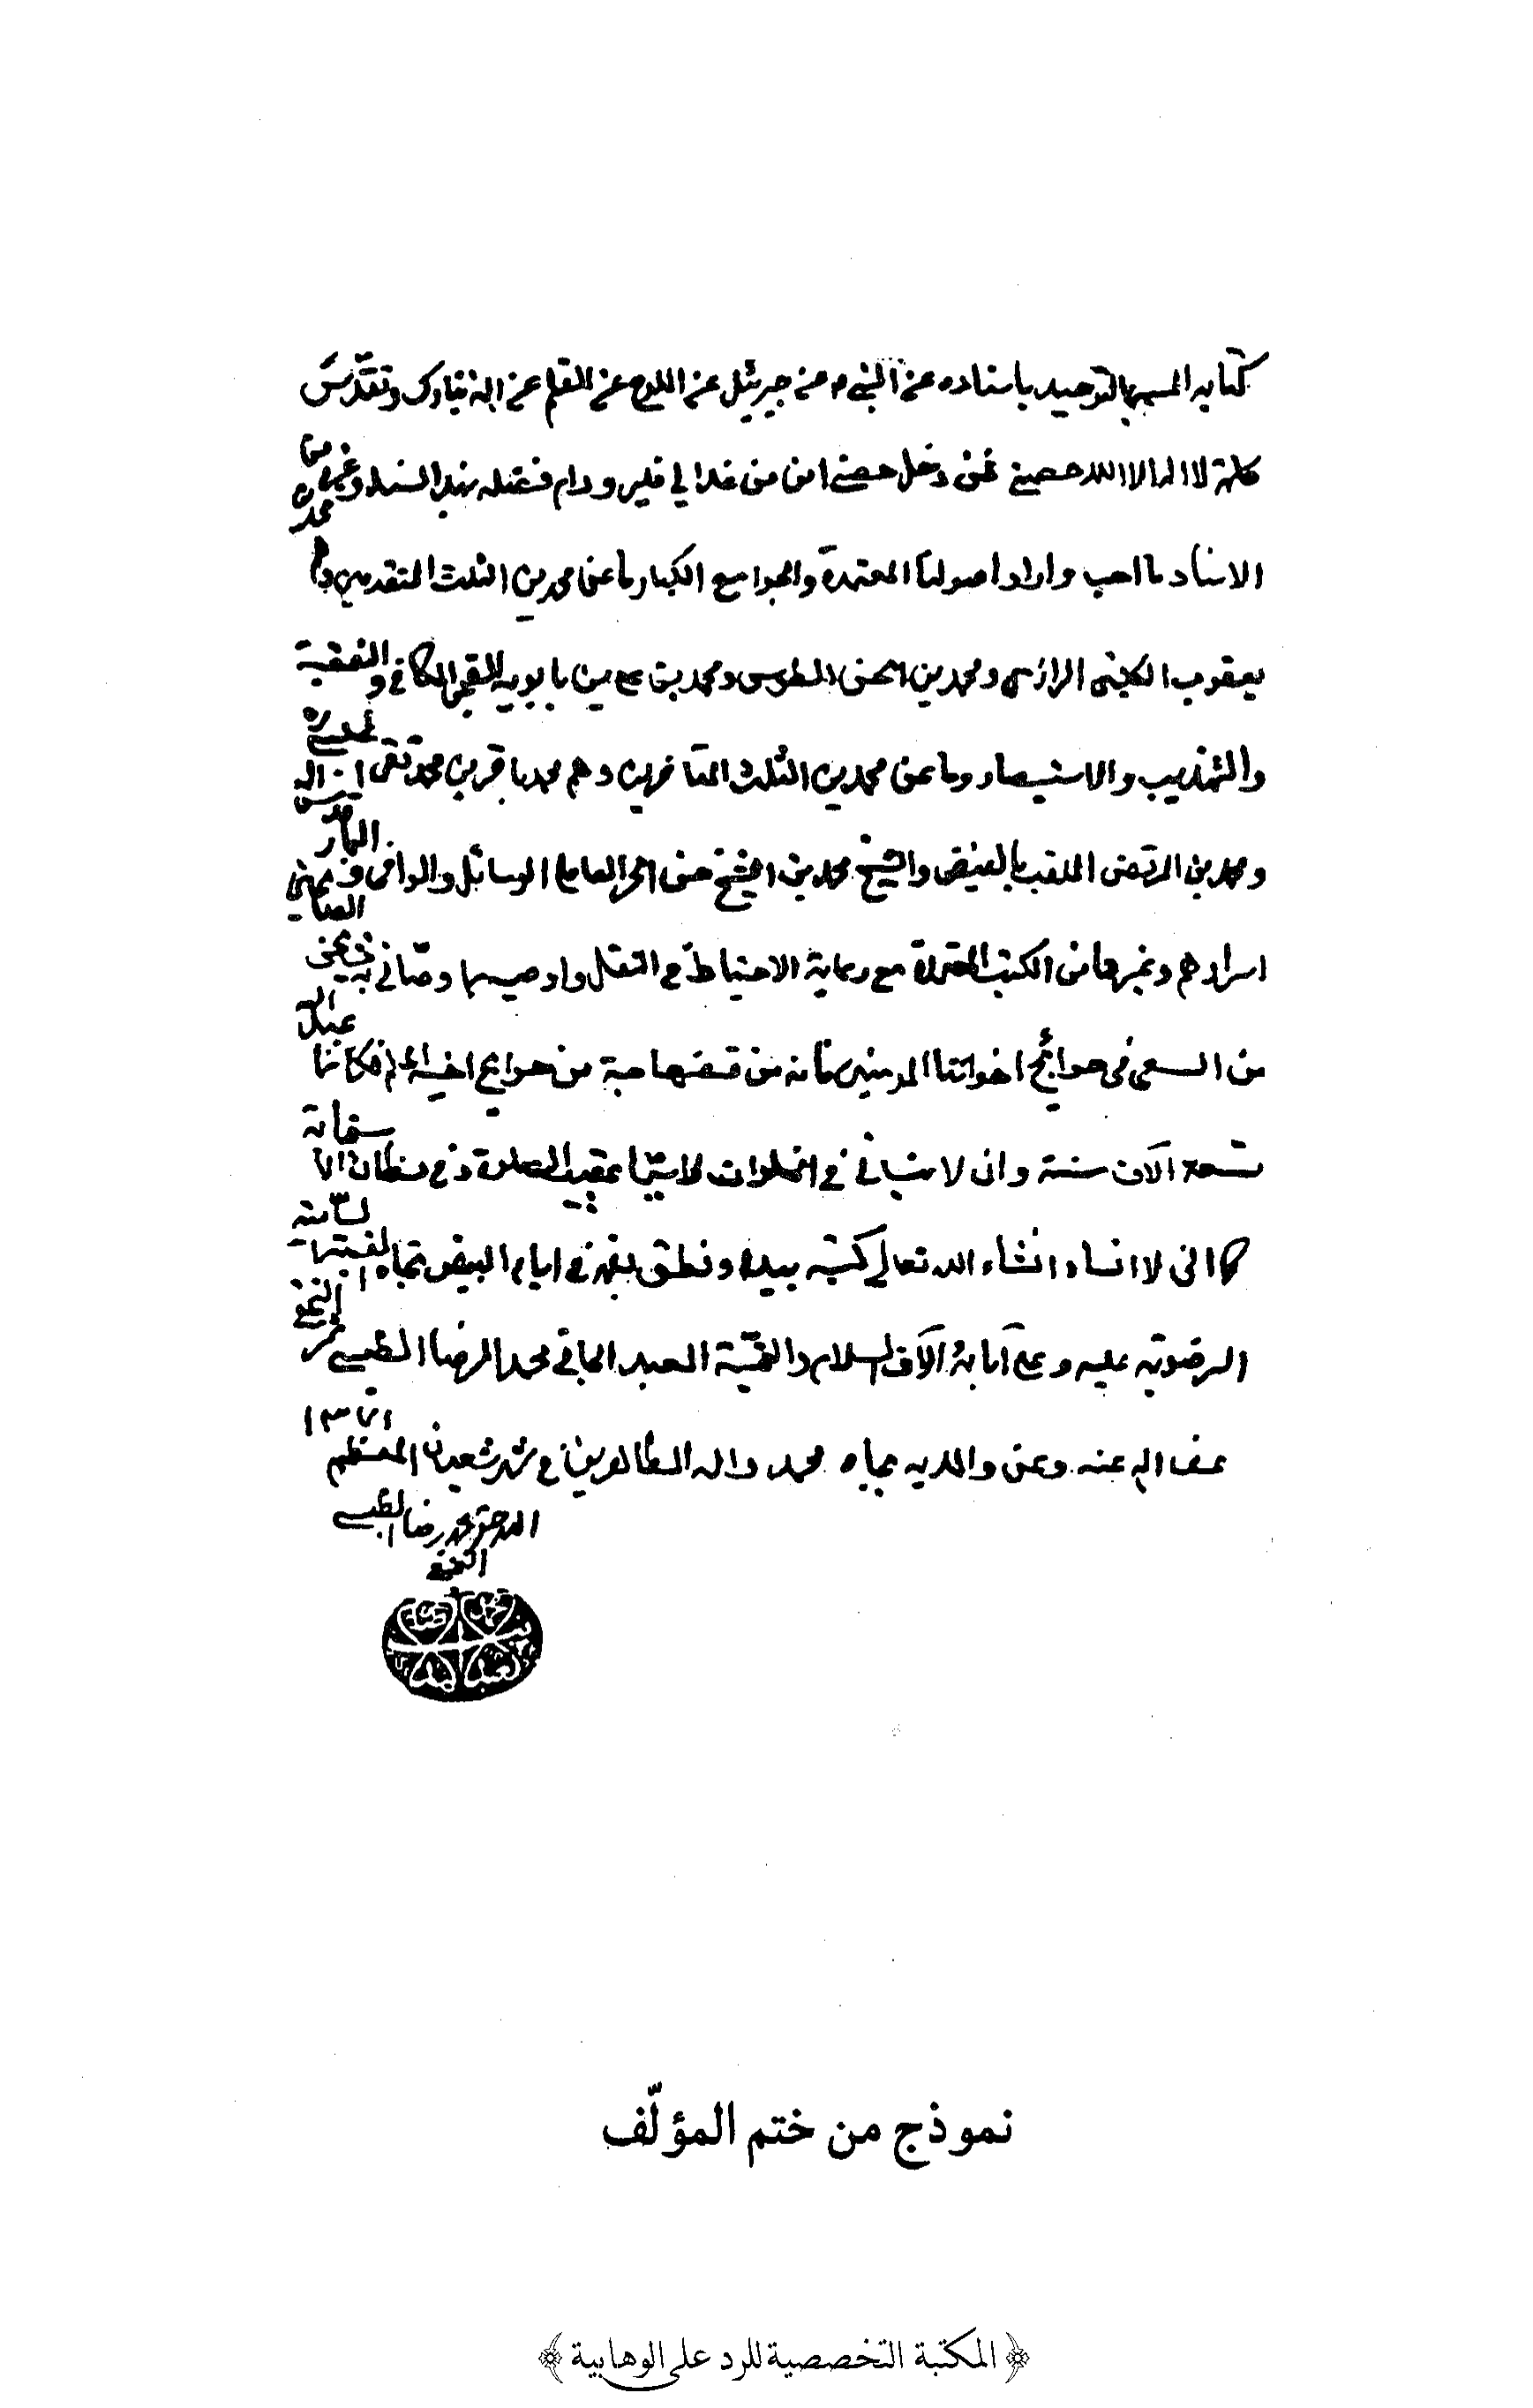 كتابه المسمى بالتوحيد باسناده عن النبي عن جبرئيل عن اللوح عن القلم عن الله تبارك وتقدس
كلمة لا اله الا الله حصني فمن دخل حصني امن من عذابي فليرو دام فضله بهذا السند وغيرها من
الاسناد ما احب واراد اصولنا المعتمدة والجوامع الكبار ما عن محمدين الثلث المتقدمين محمد بن
يعقوب الكليني الرازي ومحمد بن الحسن الطوسي ومحمد بن علي بن بابويه القمي الكافي والفقيه
والتهذيب والاستبصار وما عن محمدين الثلث المتأخرين وهم محمد باقر بن محمد تقي المجلسي
ومحمد بن المرتضى الملقب بالفيض والشيخ محمد بن الشيخ حسن الحر العاملي الوسائل والوافي والبحار
اسرارهم وغيرها من الكتب المعتمدة مع رعاية الاحتياط في النقل واوصيه بما وصاني به مشايخي
من السعي في حوائج اخواننا المؤمنين فانه من قضى حاجة من حوائج اخيه المسلم فكانما عبد الله
تسعة آلاف سنة وان لا ينساني في الخلوات لا سيما عقيب الصلوة وفي مظان الاستجابة
كما اني لا انساه انشاء الله تعالى كتبه بيده ونطق بفمه في ايام البيض تجاه القبة السامية
الرضوية عليه وعلى آبائه آلاف السلام والتحية العبد الجاني محمد الرضا الطبسي النجفي
عفا الله عنه وعن والديه بجاه محمد واله الطاهرين في شهر شعبان المعظم ١٣٧١
الاحقر محمد رضا الطبسي
النجفي
نموذج من ختم المؤلّف
﴿المكتبة التخصصية للرد على الوهابية﴾